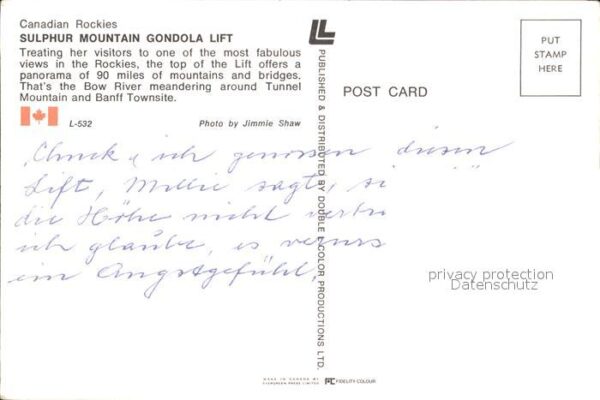 Canadian Rockies
SULPHUR MOUNTAIN GONDOLA LIFT
Treating her visitors to one of the most fabulous
views in the Rockies, the top of the Lift offers a
panorama of 90 miles of mountains and bridges.
That's the Bow River meandering around Tunnel
Mountain and Banff Townsite.
L-532
Photo by Jimmie Shaw
Chuck u ich genossen diesen
Lift, Millie sagt, si
die Höhe nicht vertra
ich glaube, es verurs
ein Angstgefühl.
PUBLISHED & DISTRIBUTED BY DOUBLE L COLOR PRODUCTIONS LTD.
POST CARD
PUT
STAMP
HERE
privacy protection
Datenschutz
MADE IN CANADA BY
EVERGREEN PRESS LIMITED
FIDELITY COLOUR